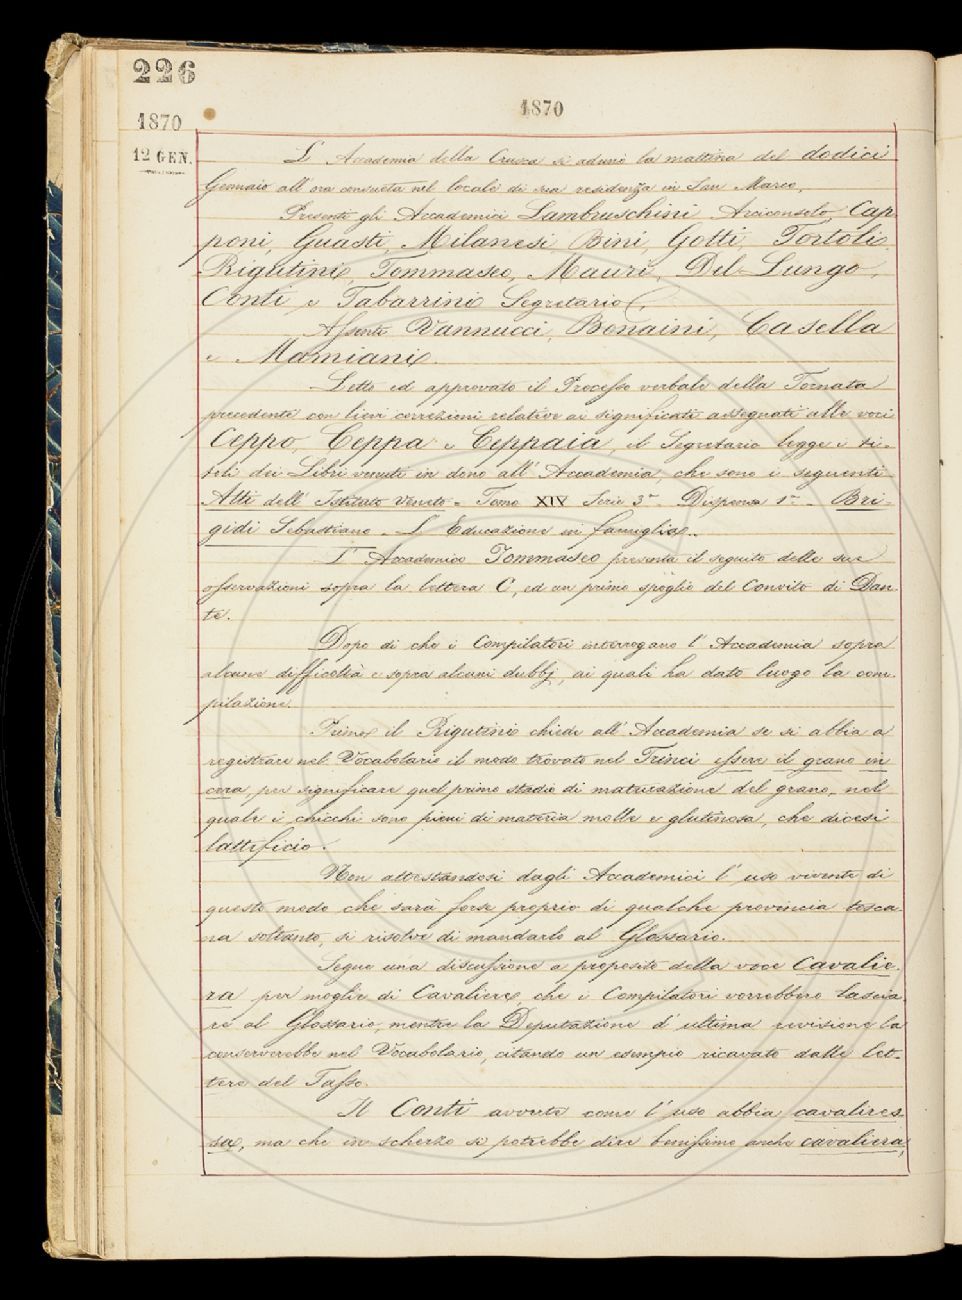 226
1870
1870
12 GEN.
L' Accademia della Crusca si adunò la mattina del dodici
Gennaio all'ora consueta nel locale di sua residenza in San Marco.
Presenti gli Accademici Lambruschini Arciconsolo, Cap-
poni, Guasti, Milanesi, Bini, Gotti, Tortoli,
Rigutini, Tommaseo, Mauri, Del-Lungo,
Conti e Tabarrini Segretario.
Assenti Vannucci, Bonaini, Casella
e Mamiani.
Letto ed approvato il Processo verbale della Tornata
precedente con lievi correzioni relative ai significati assegnati alle voci
Ceppo, Ceppa e Ceppaia, il Segretario legge i ti-
toli dei Libri venuti in dono all'Accademia, che sono i seguenti
Atti dell'Istituto Veneto - Tomo XIV Serie 3ª Dispensa 1ª - Bri-
gidi Sebastiano - L'Educazione in famiglia.
L'Accademico Tommaseo presenta il seguito delle sue
osservazioni sopra la lettera C, ed un primo spoglio del Convito di Dan-
te.
Dopo di che i Compilatori interrogano l'Accademia sopra
alcune difficoltà e sopra alcuni dubbj, ai quali ha dato luogo la com-
pilazione.
Primo il Rigutini chiede all'Accademia se si abbia a
registrare nel Vocabolario il modo trovato nel Trinci essere il grano in
cera, per significare quel primo stadio di maturazione del grano, nel
quale i chicchi sono pieni di materia molle e glutinosa, che dicesi
lattificio.
Non attestandosi dagli Accademici l'uso vivente di
questo modo che sarà forse proprio di qualche provincia tosca-
na soltanto, si risolve di mandarlo al Glossario.
Segue una discussione a proposito della voce Cavalie-
ra per moglie di Cavaliere, che i Compilatori vorrebbero lascia-
re al Glossario, mentre la Deputazione d'ultima revisione la
conserverebbe nel Vocabolario, citando un esempio ricavato dalle let-
tere del Tasso.
Il Conti avverte come l'uso abbia cavalires-
sa, ma che in ischerzo si potrebbe dire benissimo anche cavaliera,